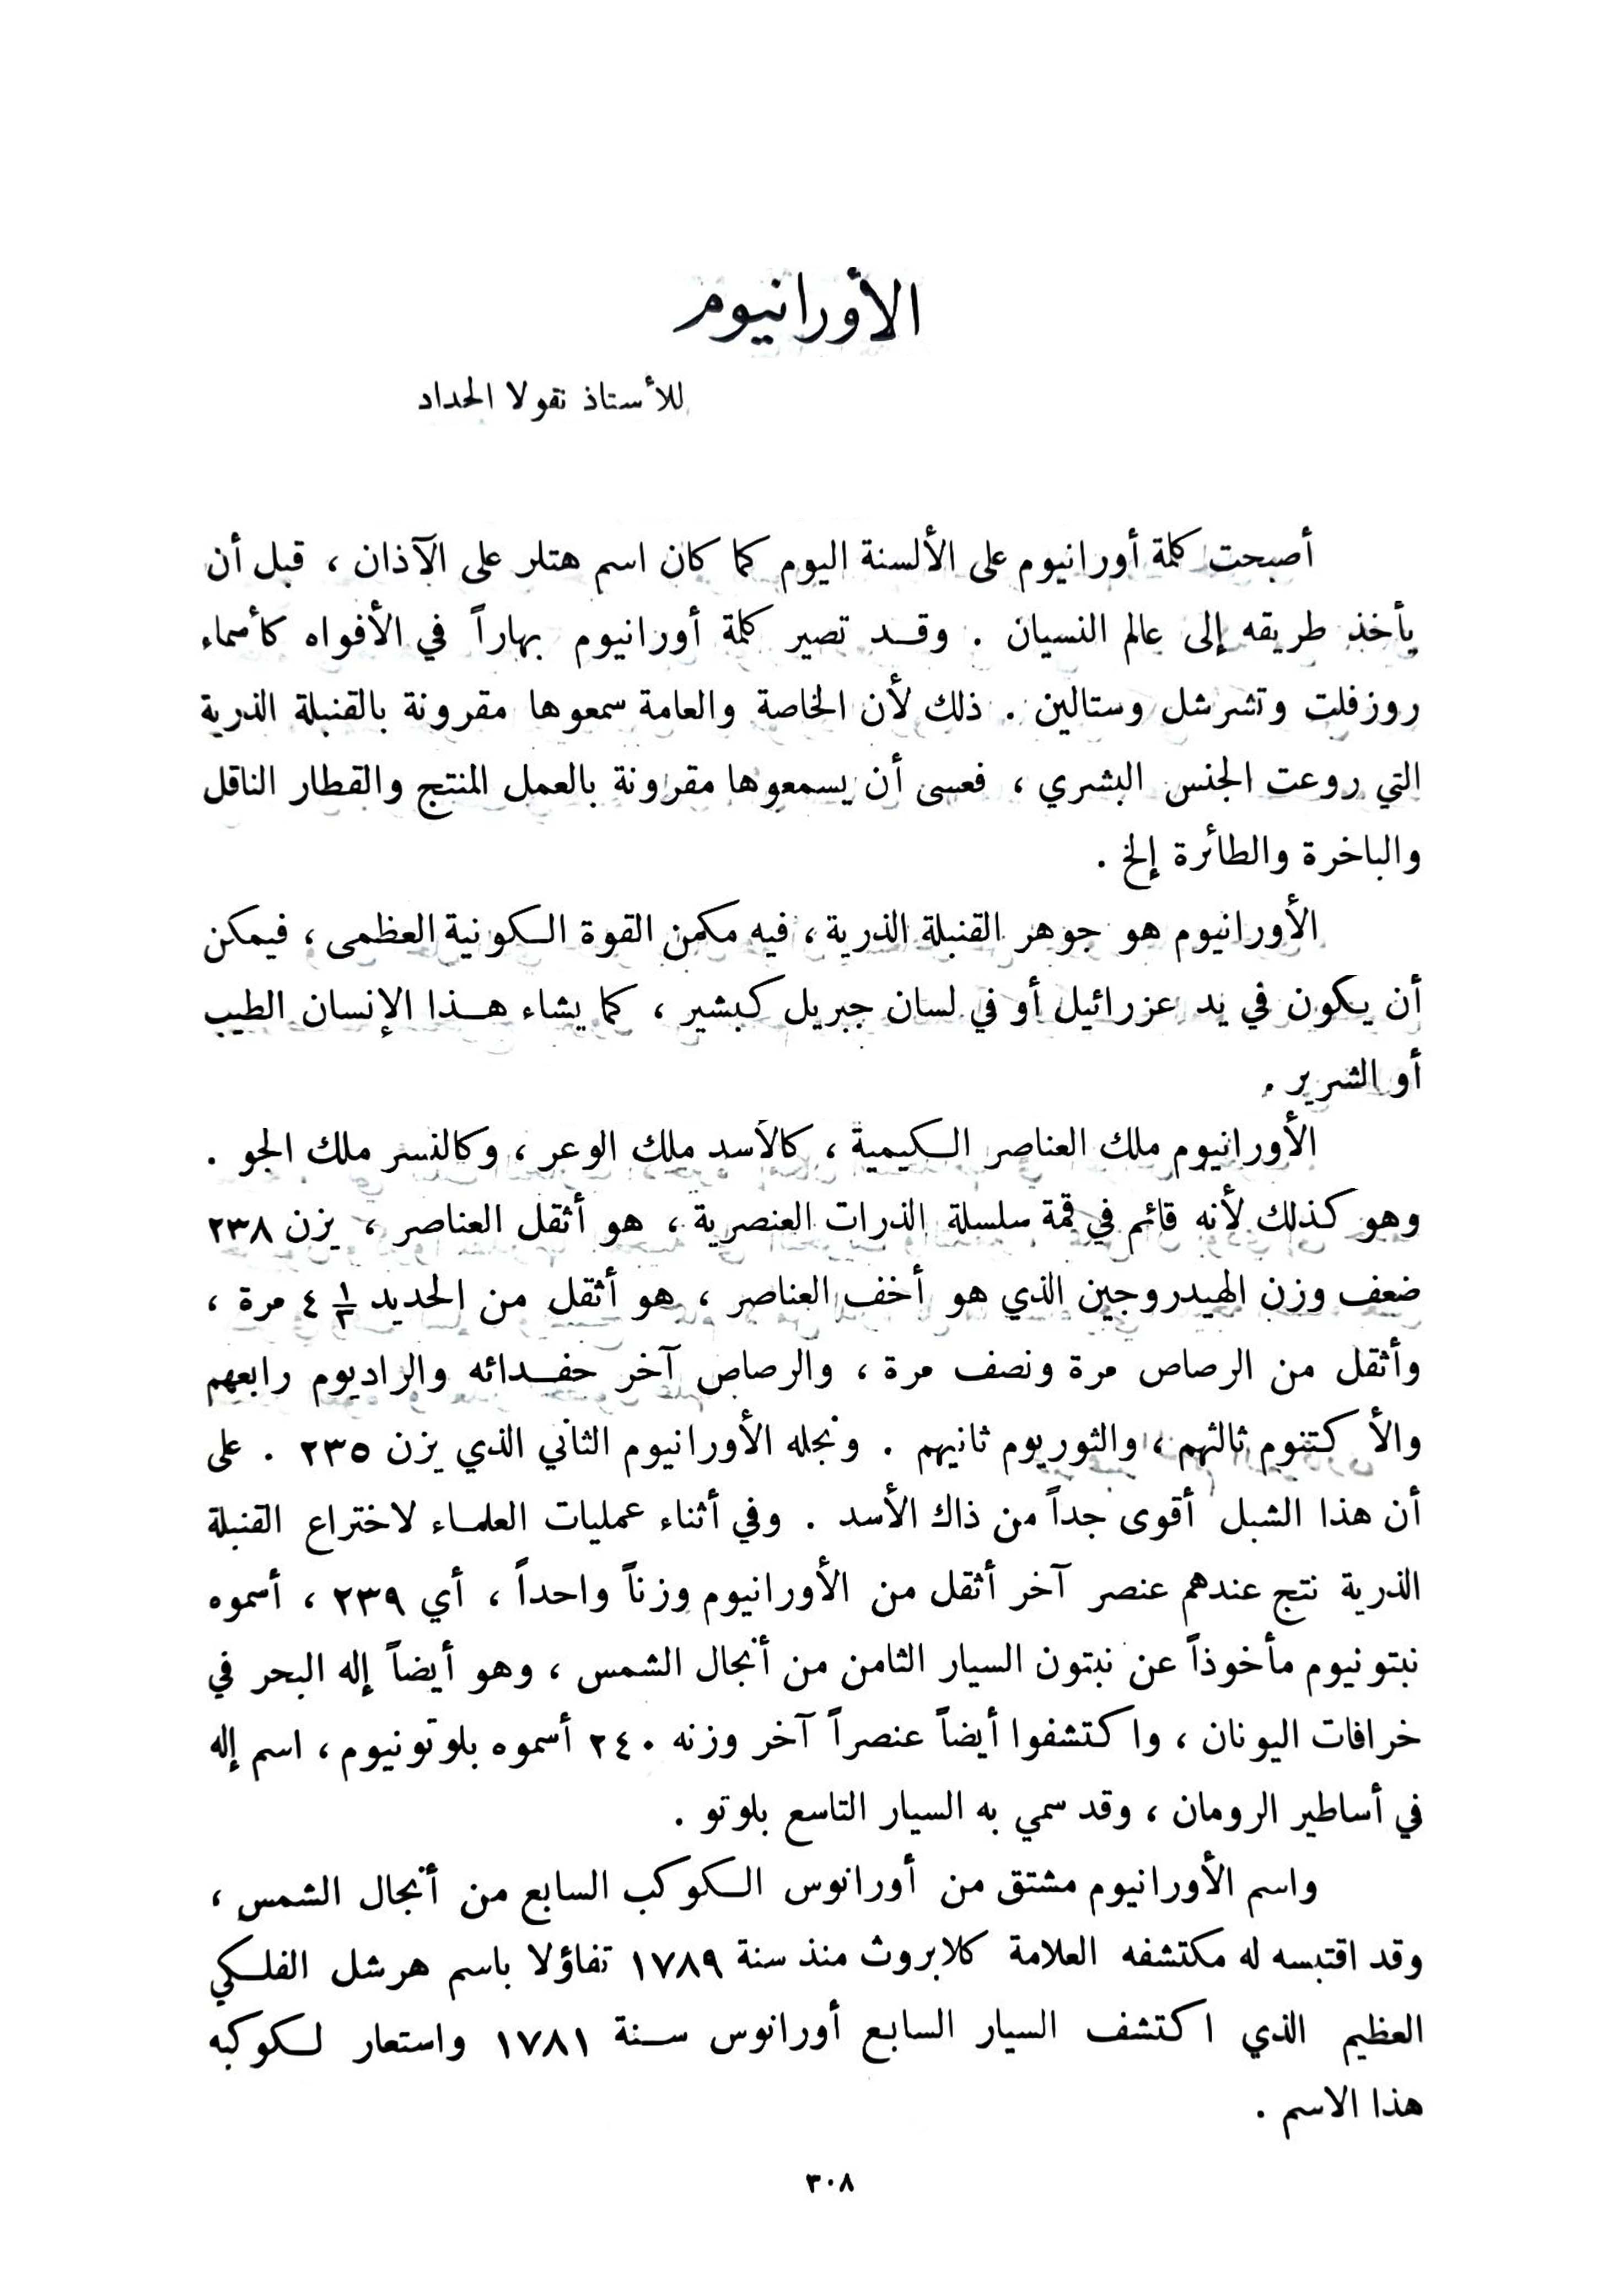 الأورانيوم
للأستاذ نقولا الحداد
أصبحت كلمة أورانيوم على الألسنة اليوم كما كان اسم هتلر على الآذان ، قبل أن
يأخذ طريقه إلى عالم النسيان . وقد تصير كلمة أورانيوم بهاراً في الأفواه كأسماء
روزفلت وتشرشل وستالين . ذلك لأن الخاصة والعامة سمعوها مقرونة بالقنبلة الذرية
التي روعت الجنس البشري ، فعسى أن يسمعوها مقرونة بالعمل المنتج والقطار الناقل
والباخرة والطائرة إلخ .
الأورانيوم هو جوهر القنبلة الذرية ، فيه مكمن القوة الكونية العظمى ، فيمكن
أن يكون في يد عزرائيل أو في لسان جبريل كبشير ، كما يشاء هذا الإنسان الطيب
أو الشرير .
الأورانيوم ملك العناصر الكيمية ، كالأسد ملك الوعر ، وكالنسر ملك الجو .
وهو كذلك لأنه قائم في قمة سلسلة الذرات العنصرية ، هو أثقل العناصر ، يزن ٢٣٨
ضعف وزن الهيدروجين الذي هو أخف العناصر ، هو أثقل من الحديد ٤ مرة ،
وأثقل من الرصاص مرة ونصف مرة ، والرصاص آخر حفدائه والراديوم رابعهم
والأكتنوم ثالثهم ، والثوريوم ثانيهم . ونجله الأورانيوم الثاني الذي يزن ٢٣٥ . على
أن هذا الشبل أقوى جداً من ذاك الأسد . وفي أثناء عمليات العلماء لاختراع القنبلة
الذرية نتج عندهم عنصر آخر أثقل من الأورانيوم وزناً واحداً ، أي ٢٣٩ ، أسموه
نبتونيوم مأخوذاً عن نبتون السيار الثامن من أنجال الشمس ، وهو أيضاً إله البحر في
خرافات اليونان ، واكتشفوا أيضاً عنصراً آخر وزنه ٢٤٠ أسموه بلوتونيوم ، اسم إله
في أساطير الرومان ، وقد سمي به السيار التاسع بلوتو .
واسم الأورانيوم مشتق من أورانوس الكوكب السابع من أنجال الشمس ،
وقد اقتبسه له مكتشفه العلامة كلابروث منذ سنة ١٧٨٩ تفاؤلا باسم هرشل الفلكي
العظيم الذي اكتشف السيار السابع أورانوس سنة ١٧٨١ واستعار لكوكبه
هذا الاسم .
٣٠٨